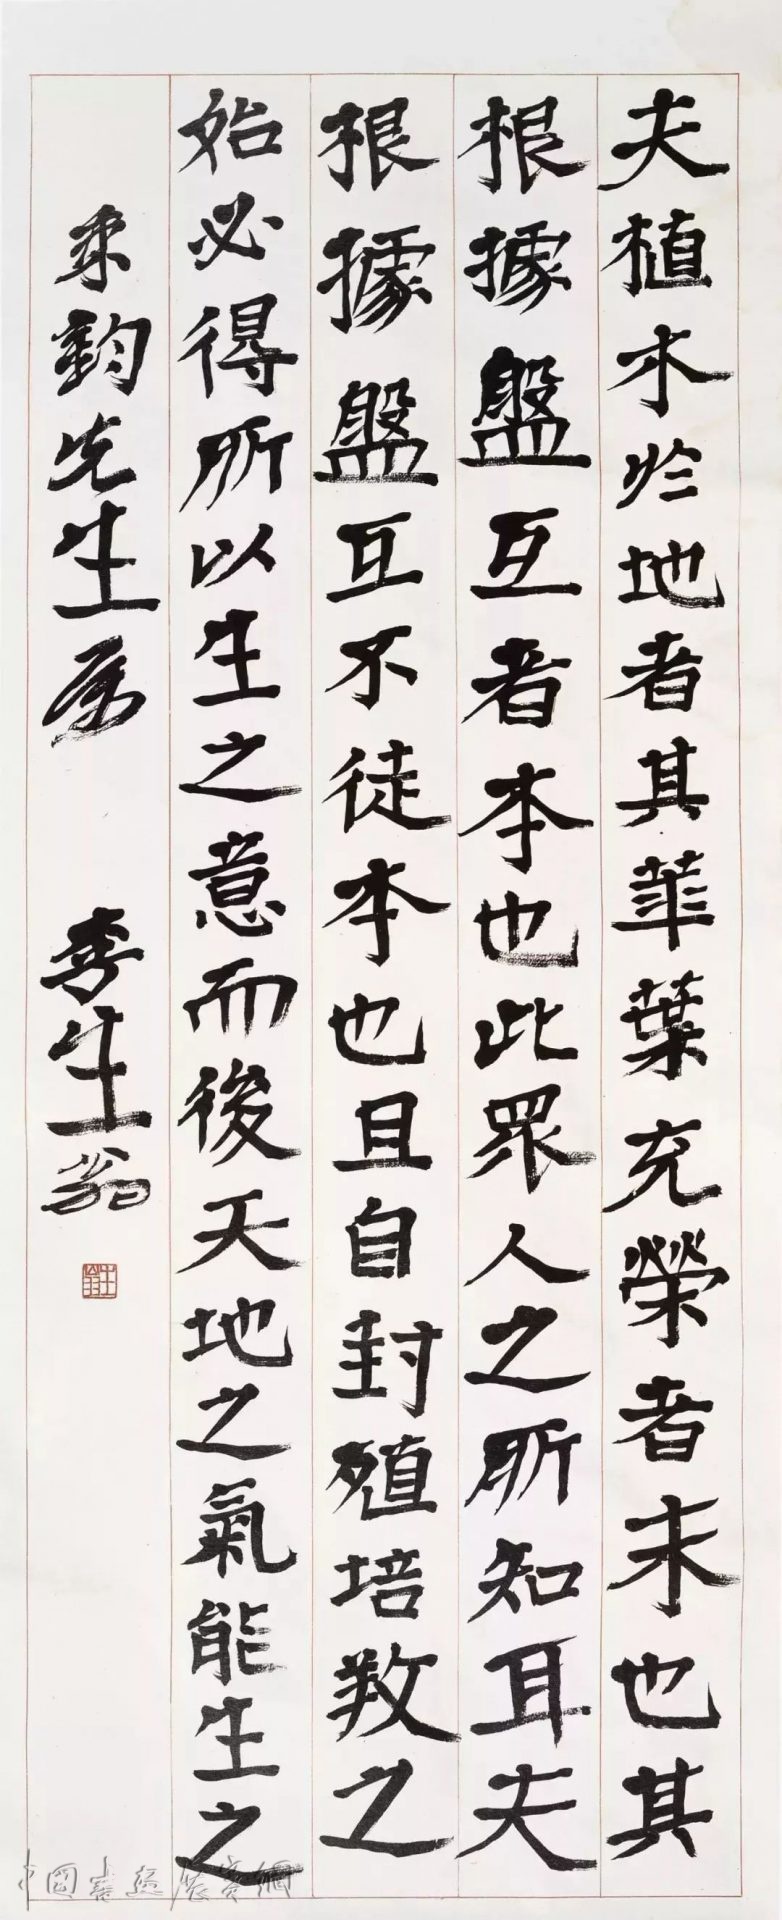 夫植木於地者其華葉充榮者末也其
根據盤互者本也此眾人之所知耳夫
根據盤互不徒本也且自封殖培𢼝之
始必得所以生之意而後天地之氣能生之
秉鈞先生属 李生翁
生翁
中国書画展賽網